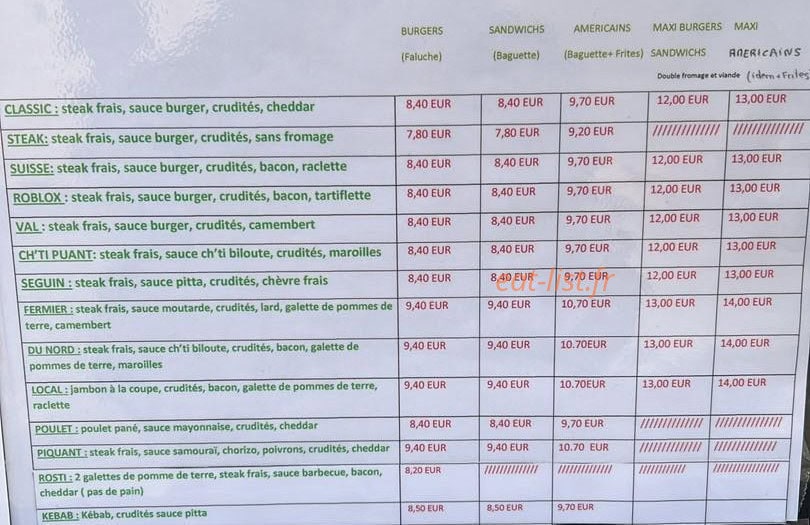 BURGERS SANDWICHS AMERICAINS MAXI BURGERS MAXI
(Faluche) (Baguette) (Baguette+ Frites) SANDWICHS AMERICAINS
Double fromage et viande (idem + Frites)
CLASSIC : steak frais, sauce burger, crudités, cheddar 8,40 EUR 8,40 EUR 9,70 EUR 12,00 EUR 13,00 EUR
STEAK: steak frais, sauce burger, crudités, sans fromage 7,80 EUR 7,80 EUR 9,20 EUR ////////////// ///////////////
SUISSE: steak frais, sauce burger, crudités, bacon, raclette 8,40 EUR 8,40 EUR 9,70 EUR 12,00 EUR 13,00 EUR
ROBLOX : steak frais, sauce burger, crudités, bacon, tartiflette 8,40 EUR 8,40 EUR 9,70 EUR 12,00 EUR 13,00 EUR
VAL : steak frais, sauce burger, crudités, camembert 8,40 EUR 8,40 EUR 9,70 EUR 12,00 EUR 13,00 EUR
CH'TI PUANT: steak frais, sauce ch'ti biloute, crudités, maroilles 8,40 EUR 8,40 EUR 9,70 EUR 12,00 EUR 13,00 EUR
SEGUIN : steak frais, sauce pitta, crudités, chèvre frais 8,40 EUR 8,40 EUR 9,70 EUR 12,00 EUR 13,00 EUR
eat-list.fr
FERMIER : steak frais, sauce moutarde, crudités, lard, galette de pommes de 9,40 EUR 9,40 EUR 10,70 EUR 13,00 EUR 14,00 EUR
terre, camembert
DU NORD : steak frais, sauce ch'ti biloute, crudités, bacon, galette de 9,40 EUR 9,40 EUR 10.70EUR 13,00 EUR 14,00 EUR
pommes de terre, maroilles
LOCAL : jambon à la coupe, crudités, bacon, galette de pommes de terre, 9,40 EUR 9,40 EUR 10.70EUR 13,00 EUR 14,00 EUR
raclette
POULET : poulet pané, sauce mayonnaise, crudités, cheddar 8,40 EUR 8,40 EUR 9,70 EUR ////////////// ///////////////
PIQUANT : steak frais, sauce samouraï, chorizo, poivrons, crudités, cheddar 9,40 EUR 9,40 EUR 10.70 EUR ////////////// //////////////
ROSTI : 2 galettes de pomme de terre, steak frais, sauce barbecue, bacon, 8,20 EUR ////////////// ////////////// ////////////// ///////////////
cheddar ( pas de pain)
KEBAB : Kébab, crudités sauce pitta 8,50 EUR 8,50 EUR 9,70 EUR